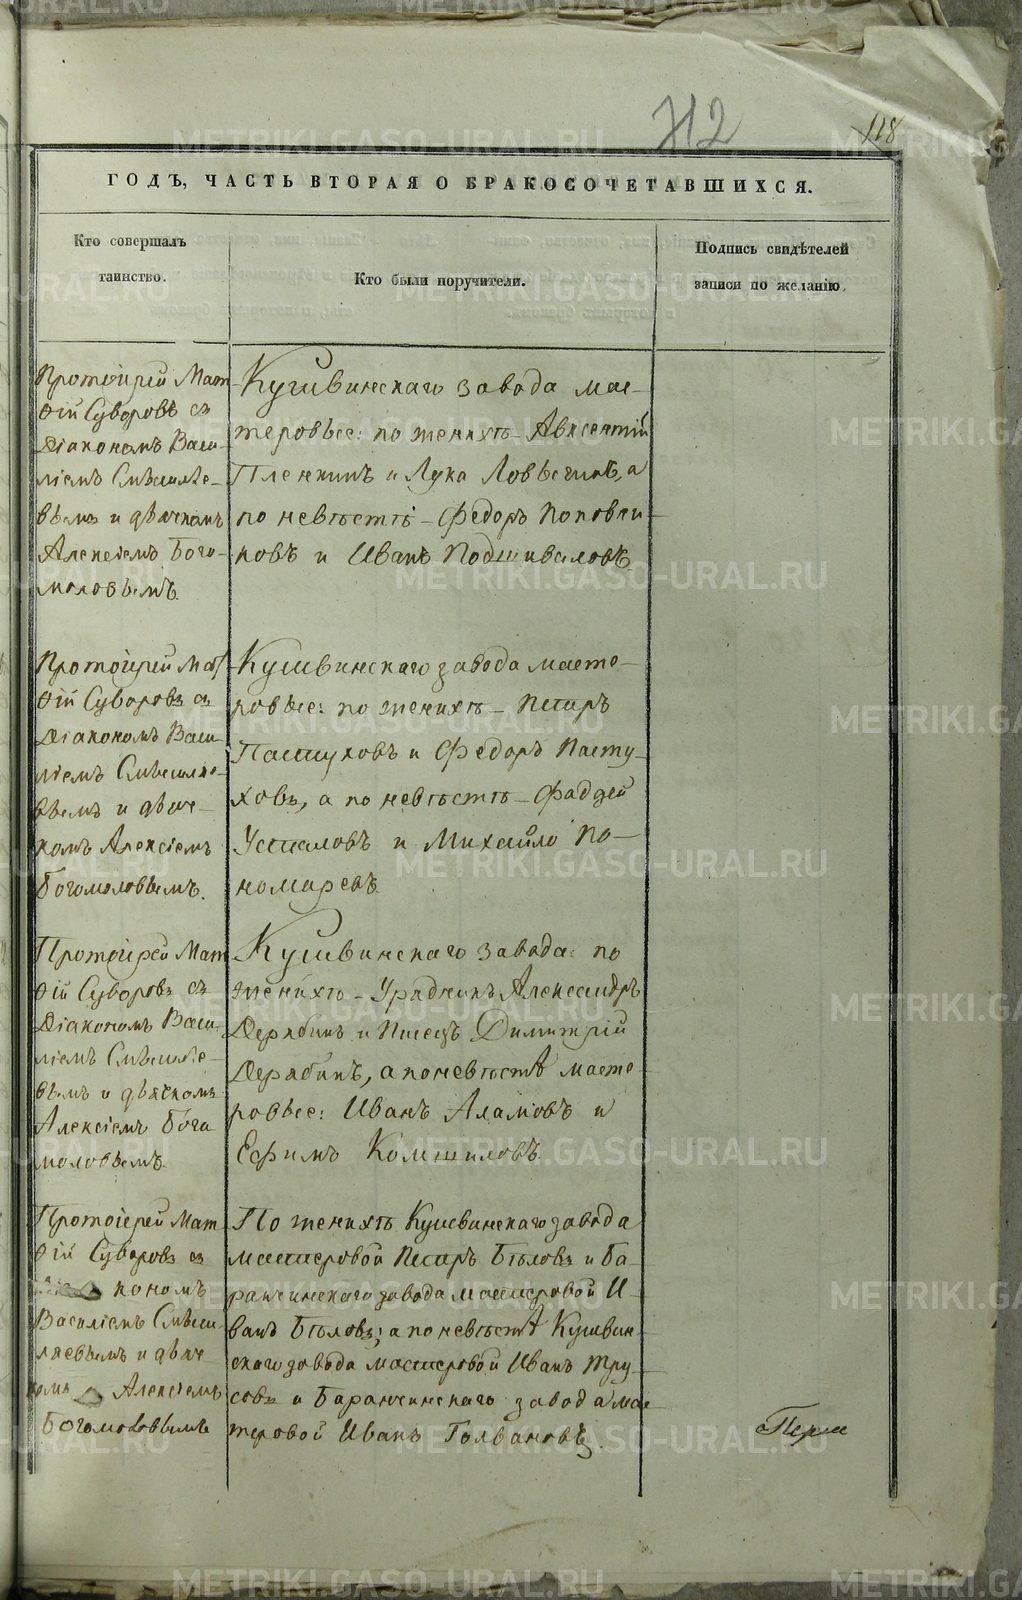 712
118
ГОДЪ, ЧАСТЬ ВТОРАЯ О БРАКОСОЧЕТАВШИХСЯ.
Кто совершалъ
таинство.
Кто были поручители.
Подпись свидѣтелей
записи по желанію.
Протоіерей Мат
ѳій Суворовъ съ
Діакономъ Васи-
ліемъ Смышляе-
вымъ и дьячкомъ
Алексіемъ Бого-
моловымъ.
Кушвинскаго завода мас-
теровые: по женихѣ – Авксентій
Пленкинъ и Лука Ловыгинъ, а
по невѣстѣ – Федоръ
ковъ и Иванъ Подшиваловъ.
Протоіерей Мат
ѳій Суворовъ съ
Діакономъ Васи-
ліемъ Смышляе-
вымъ и дьяч-
комъ Алексіемъ
Богомоловымъ.
Кушвинскаго завода масте-
ровые: по женихѣ – Петръ
Пастуховъ и Федоръ Пасту-
ховъ, а по невѣстѣ – Фаддей
Усталовъ и Михайло По-
номаревъ.
Протоіерей Мат
ѳій Суворовъ съ
Діакономъ Васи-
ліемъ Смышляе-
вымъ и дьячкомъ
Алексіемъ Бого
моловымъ.
Кушвинскаго завода: по
женихѣ – Урядникъ Александръ
Дерябинъ и Писецъ Димитрій
Дерябинъ, а по невѣстѣ масте-
ровые: Иванъ и
Ефимъ Комшиловъ.
Протоіерей Мат
ѳій Суворовъ съ
кономъ
Василіемъ Смыш-
ляевымъ и дьяч-
комъ Алексіемъ
Богомоловымъ
По женихѣ Кушвинскаго завода
мастеровой Петръ Бѣловъ и Ба-
ранчинскаго завода мастеровой И-
ванъ Бѣловъ; а по невѣстѣ Кушвин-
скаго завода мастеровой Иванъ Тру-
совъ и Баранчинскаго завода мас-
теровой Иванъ Голвановъ.
METRIKI.GASO-URAL.RU